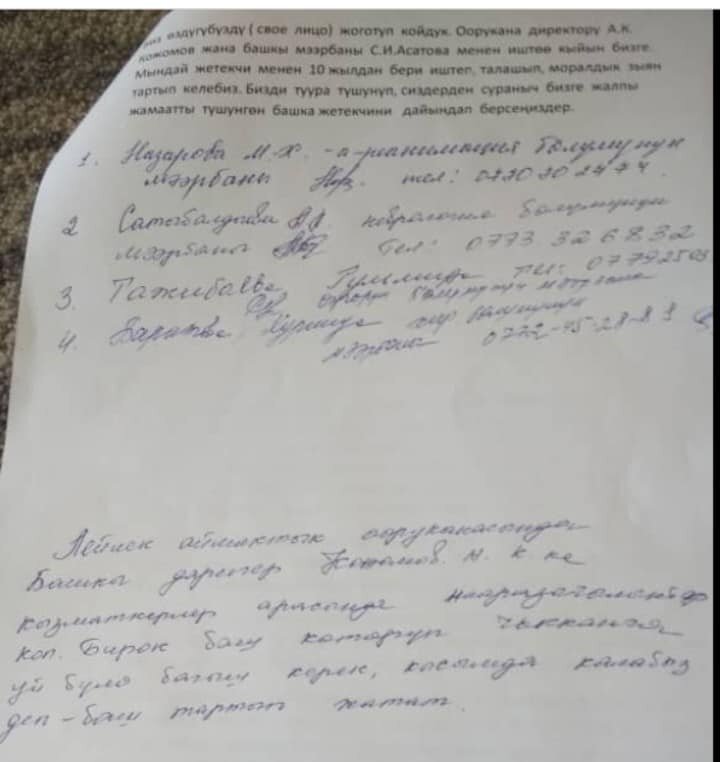 биз өздүгүбүздү ( свое лицо) жоготуп койдук. Оорукана директору А.К.
Кожомов жана башкы мээрбаны С.И.Асатова менен иштөө кыйын бизге.
Мындай жетекчи менен 10 жылдан бери иштеп, талашып, моралдык зыян
тартып келебиз. Бизди туура түшүнүп, сиздерден сураныч бизге жалпы
жамаатты түшүнгөн башка жетекчини дайындап берсеңиздер.
1. Назарова М.Х. -а-реанимация бөлүмүнүн
мээрбаны тел:
2 Сатыбалдыева неврология бөлүмүнүн
мээрбаны тел: 0773 326832
3. Тажибаева Гульмира тел: 07792503
бөлүмүнүн мээрбаны
4. Хуршида хир бөлүмүнүн
мээрбаны 0772-45-28-89
Лейлек аймактык ооруканасында
Башкы дарыгер Кожомов. А. К ке
кызматкерлер арасында нааразычылыктар
коп. Бирок баш которуп чыкканга
үй бүлө багыш керек, жумушсуз калабыз
деп - баш тартып жатат.